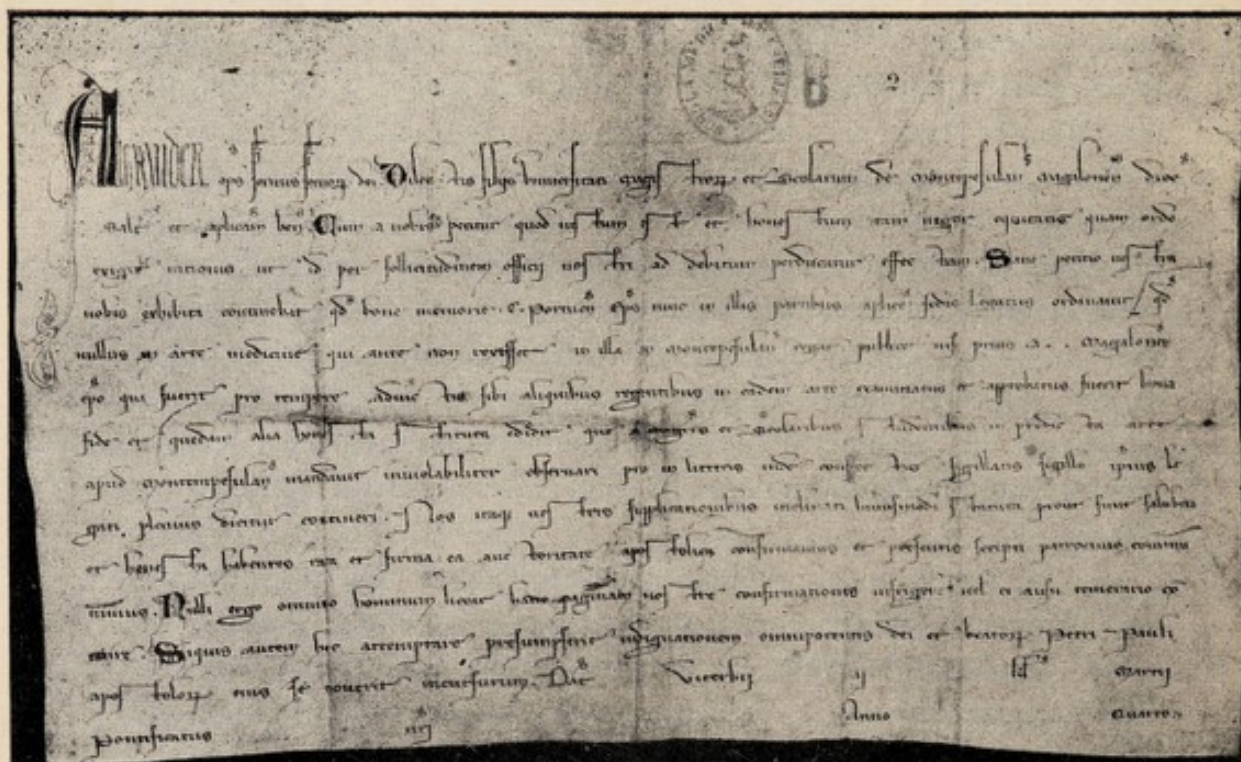 ALEXANDER ep̄s seruus seruoꝝ dei. Dilectis filiis vniuersitati magistroꝝ et Scolarium de Montepesulan̄ Magalonen̄ dioc̄
Salt̄ et aplicam ben̄. Cum a nobis petitur quod iustum est et honestum tam uigor equitatis quam ordo
exigit rationis ut id per sollicitudinem officii nostri ad debitum perducatur effectum. Sane petitio uestra
nobis exhibita continebat qd̄ bone memorie . C. Portuen̄ Ep̄s tunc in illis partibus aplice sedis Legatus ordinauit qd̄
nullus in arte medicine qui ante non rexisset in illa in Montepesulan̄ regat publice nisi prius a . . Magalonen̄
ep̄o qui fuerit pro tempore adiunctis sibi aliquibus regentibus in eadem arte examinatus et approbatus fuerit bona
fide et quedam alia honesta statuta edidit que a magr̄is et Scolaribus studentibus in predicta arte
apud Montempesulan̄ mandauit inuiolabiliter obseruari pro ut in litteris inde confectis sigillatis sigillo ipsius Le
gati plenius dicitur contineri. Nos itaqꝫ uestris supplicationibus inclinati huiusmodi statuta prout sunt
et honesta habentes rata et firma ea auctoritate apostolica confirmamus et presentis scripti patrocinio com̄u
nimus. Nulli ergo omnino hominum liceat hanc paginam nostre confirmationis infringere uel ei ausu temerario cō
traire. Siquis autem hoc attemptare presumpserit indignationem omnipotentis dei et beatoꝝ Petri Pauli
apostoloꝝ eius se nouerit incursurum. Dat̄ Viterbii ij Martij
Pontificatus nr̄i Anno Quarto
2
B